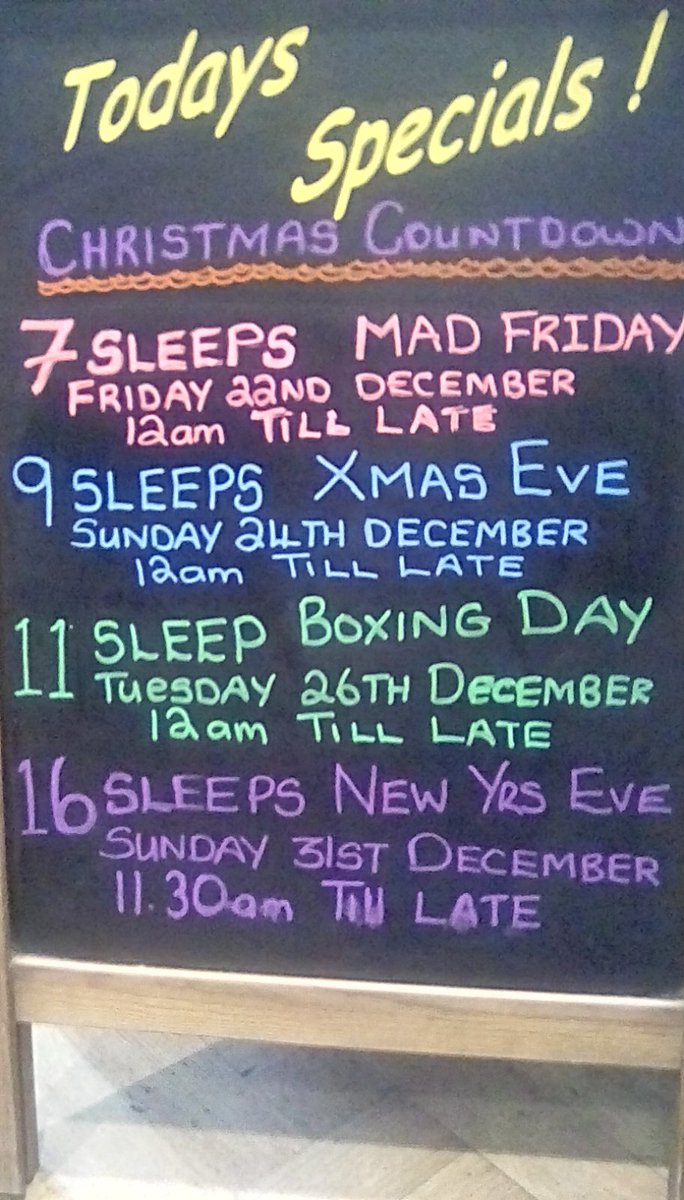 Todays
Specials!
CHRISTMAS COUNTDOWN
7 SLEEPS MAD FRIDAY
FRIDAY 22ND DECEMBER
12am TILL LATE
9 SLEEPS XMAS EVE
SUNDAY 24TH DECEMBER
12am TILL LATE
11 SLEEP BOXING DAY
TUESDAY 26TH DECEMBER
12am TILL LATE
16 SLEEPS NEW YRS EVE
SUNDAY 31ST DECEMBER
11.30am Till LATE